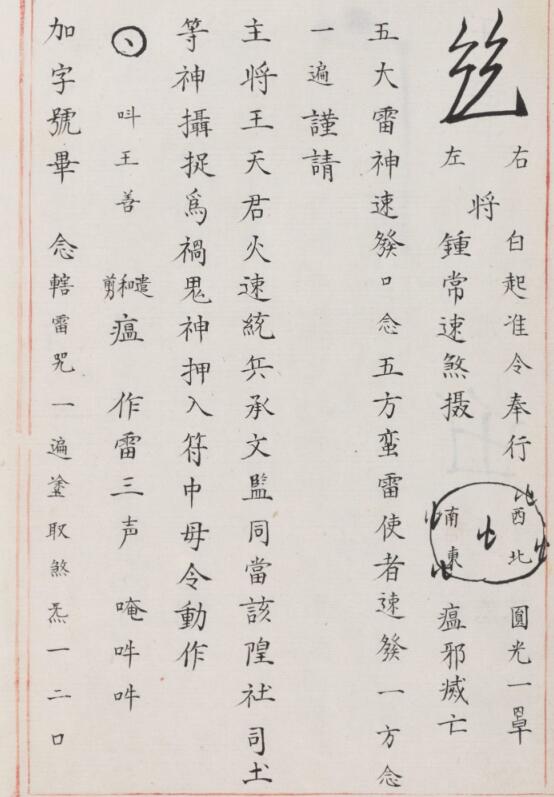 右
左
将
白起准令奉行
鍾常速煞摄
西北
南東
圓光一罩
瘟邪滅亡
五大雷神速發口念五方蛮雷使者速發一方念
一遍謹請
主將王天君火速統兵承文監同當該隍社司土
等神攝捉爲禍鬼神押入符中毋令動作
呌王善 遣和剪瘟 作雷三声 唵吽吽
加字號畢 念轄雷咒一遍塗取煞炁一二口